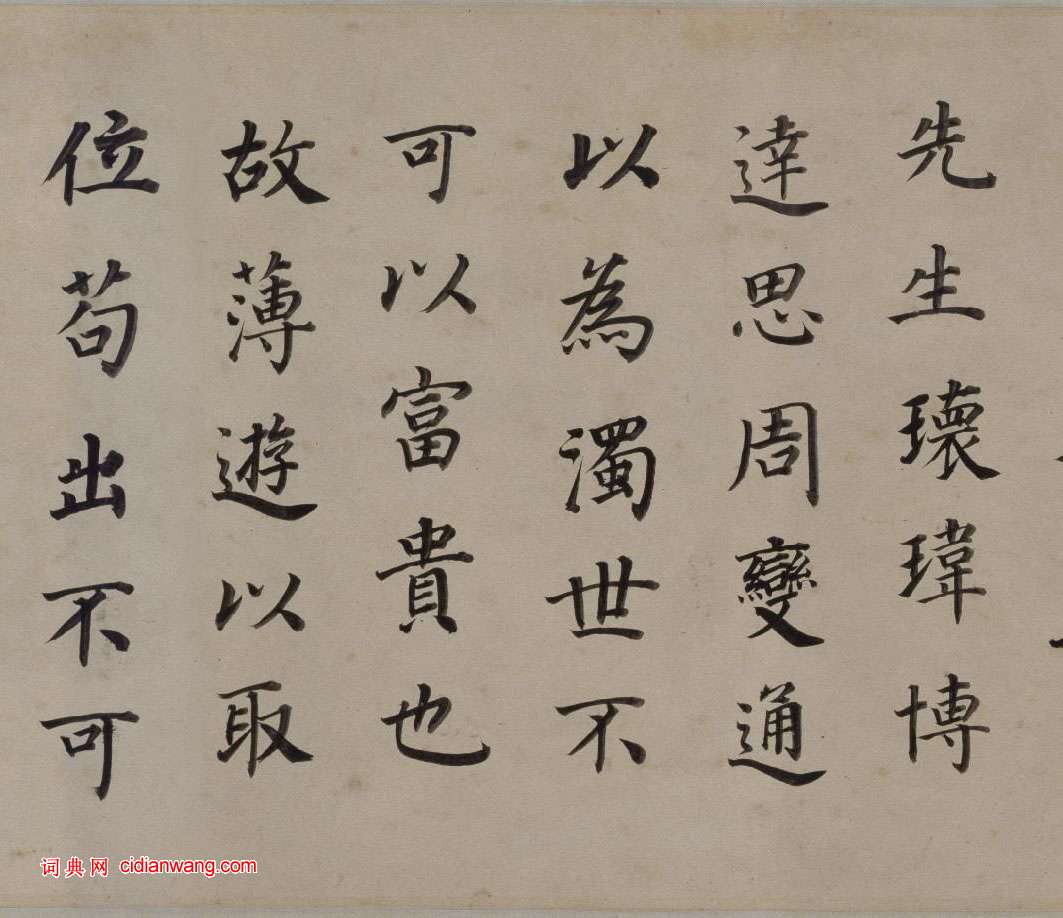 先生瓌瑋博
達思周變通
以為濁世不
可以富貴也
故薄遊以取
位苟出不可
词典网 cidianwang.com